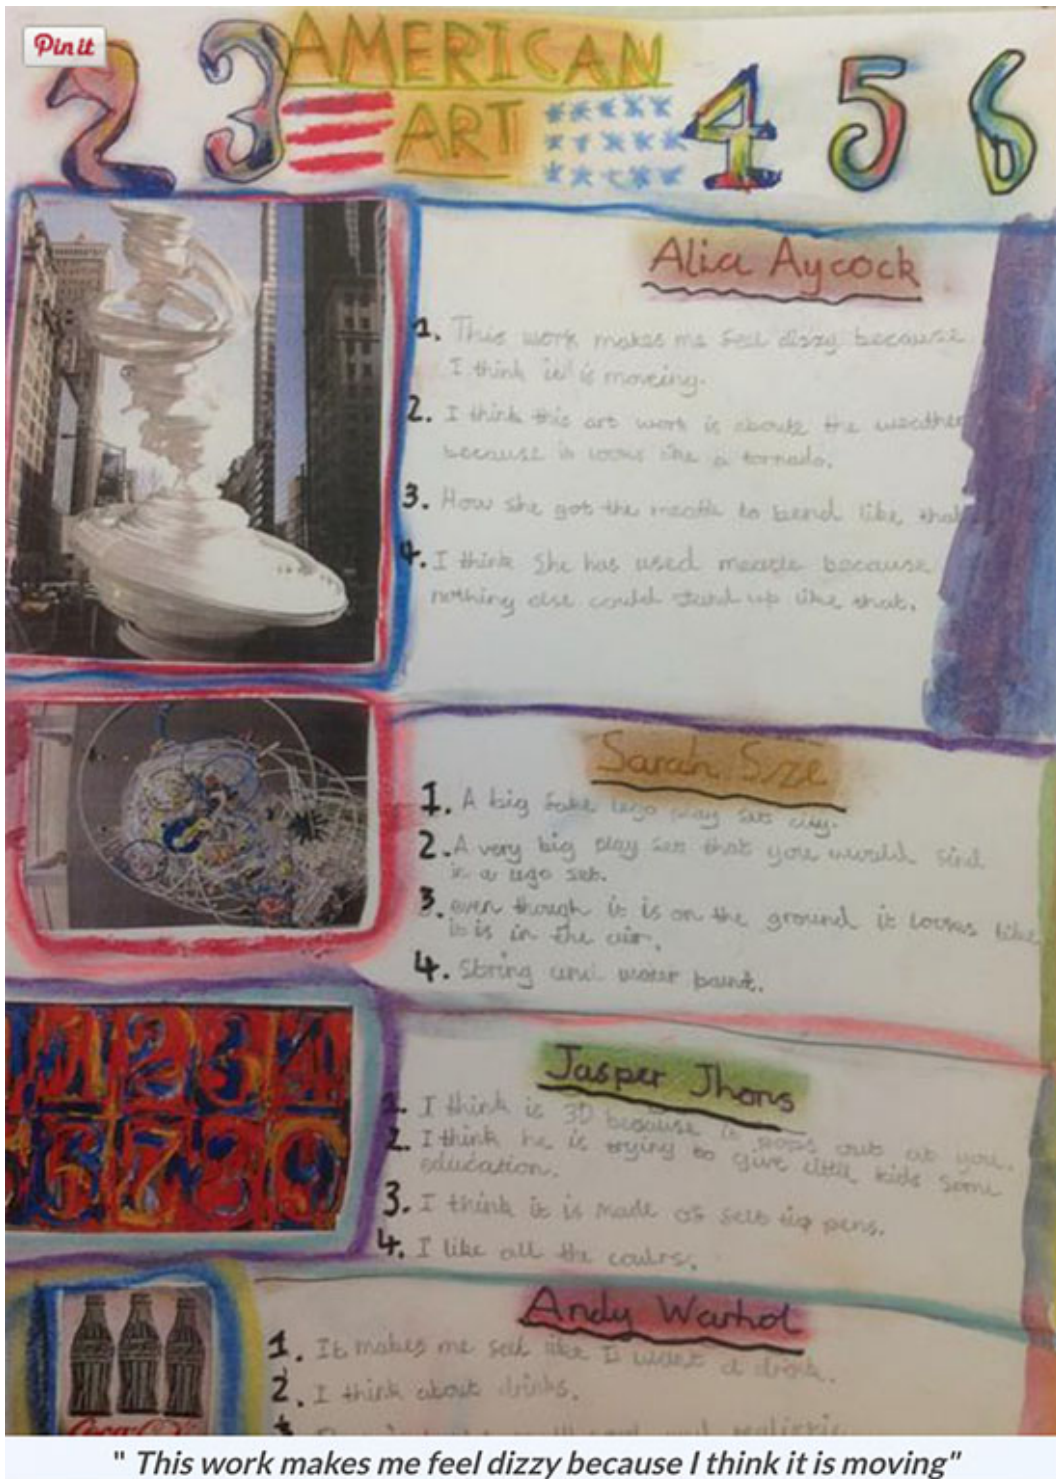 Pin it
2 3 AMERICAN 4 5 6
ART
Alia Aycock
1. This work makes me feel dizzy because
I think it is moveing.
2. I think this art work is aboute the weather
because it looks like a tornado.
3. How she got the meatle to bend like that
4. I think She has used meatle because
nothing else could stand up like that.
Sarah Sze
1. A big fake lego play set city.
2. A very big play set that you would find
in a lego set.
3. even though it is on the ground it looks like
it is in the air.
4. String and water paint.
1 2 3 4
6 7 8 9
Jasper Jhons
1. I think is 3D because it pops out at you.
2. I think he is trying to give little kids some
education.
3. I think it is made of felt tip pens.
4. I like all the coulrs.
Andy Warhol
1. It makes me feel like I want a drink.
2. I think about drinks.
3. and realistic
Coca-Cola
" This work makes me feel dizzy because I think it is moving"